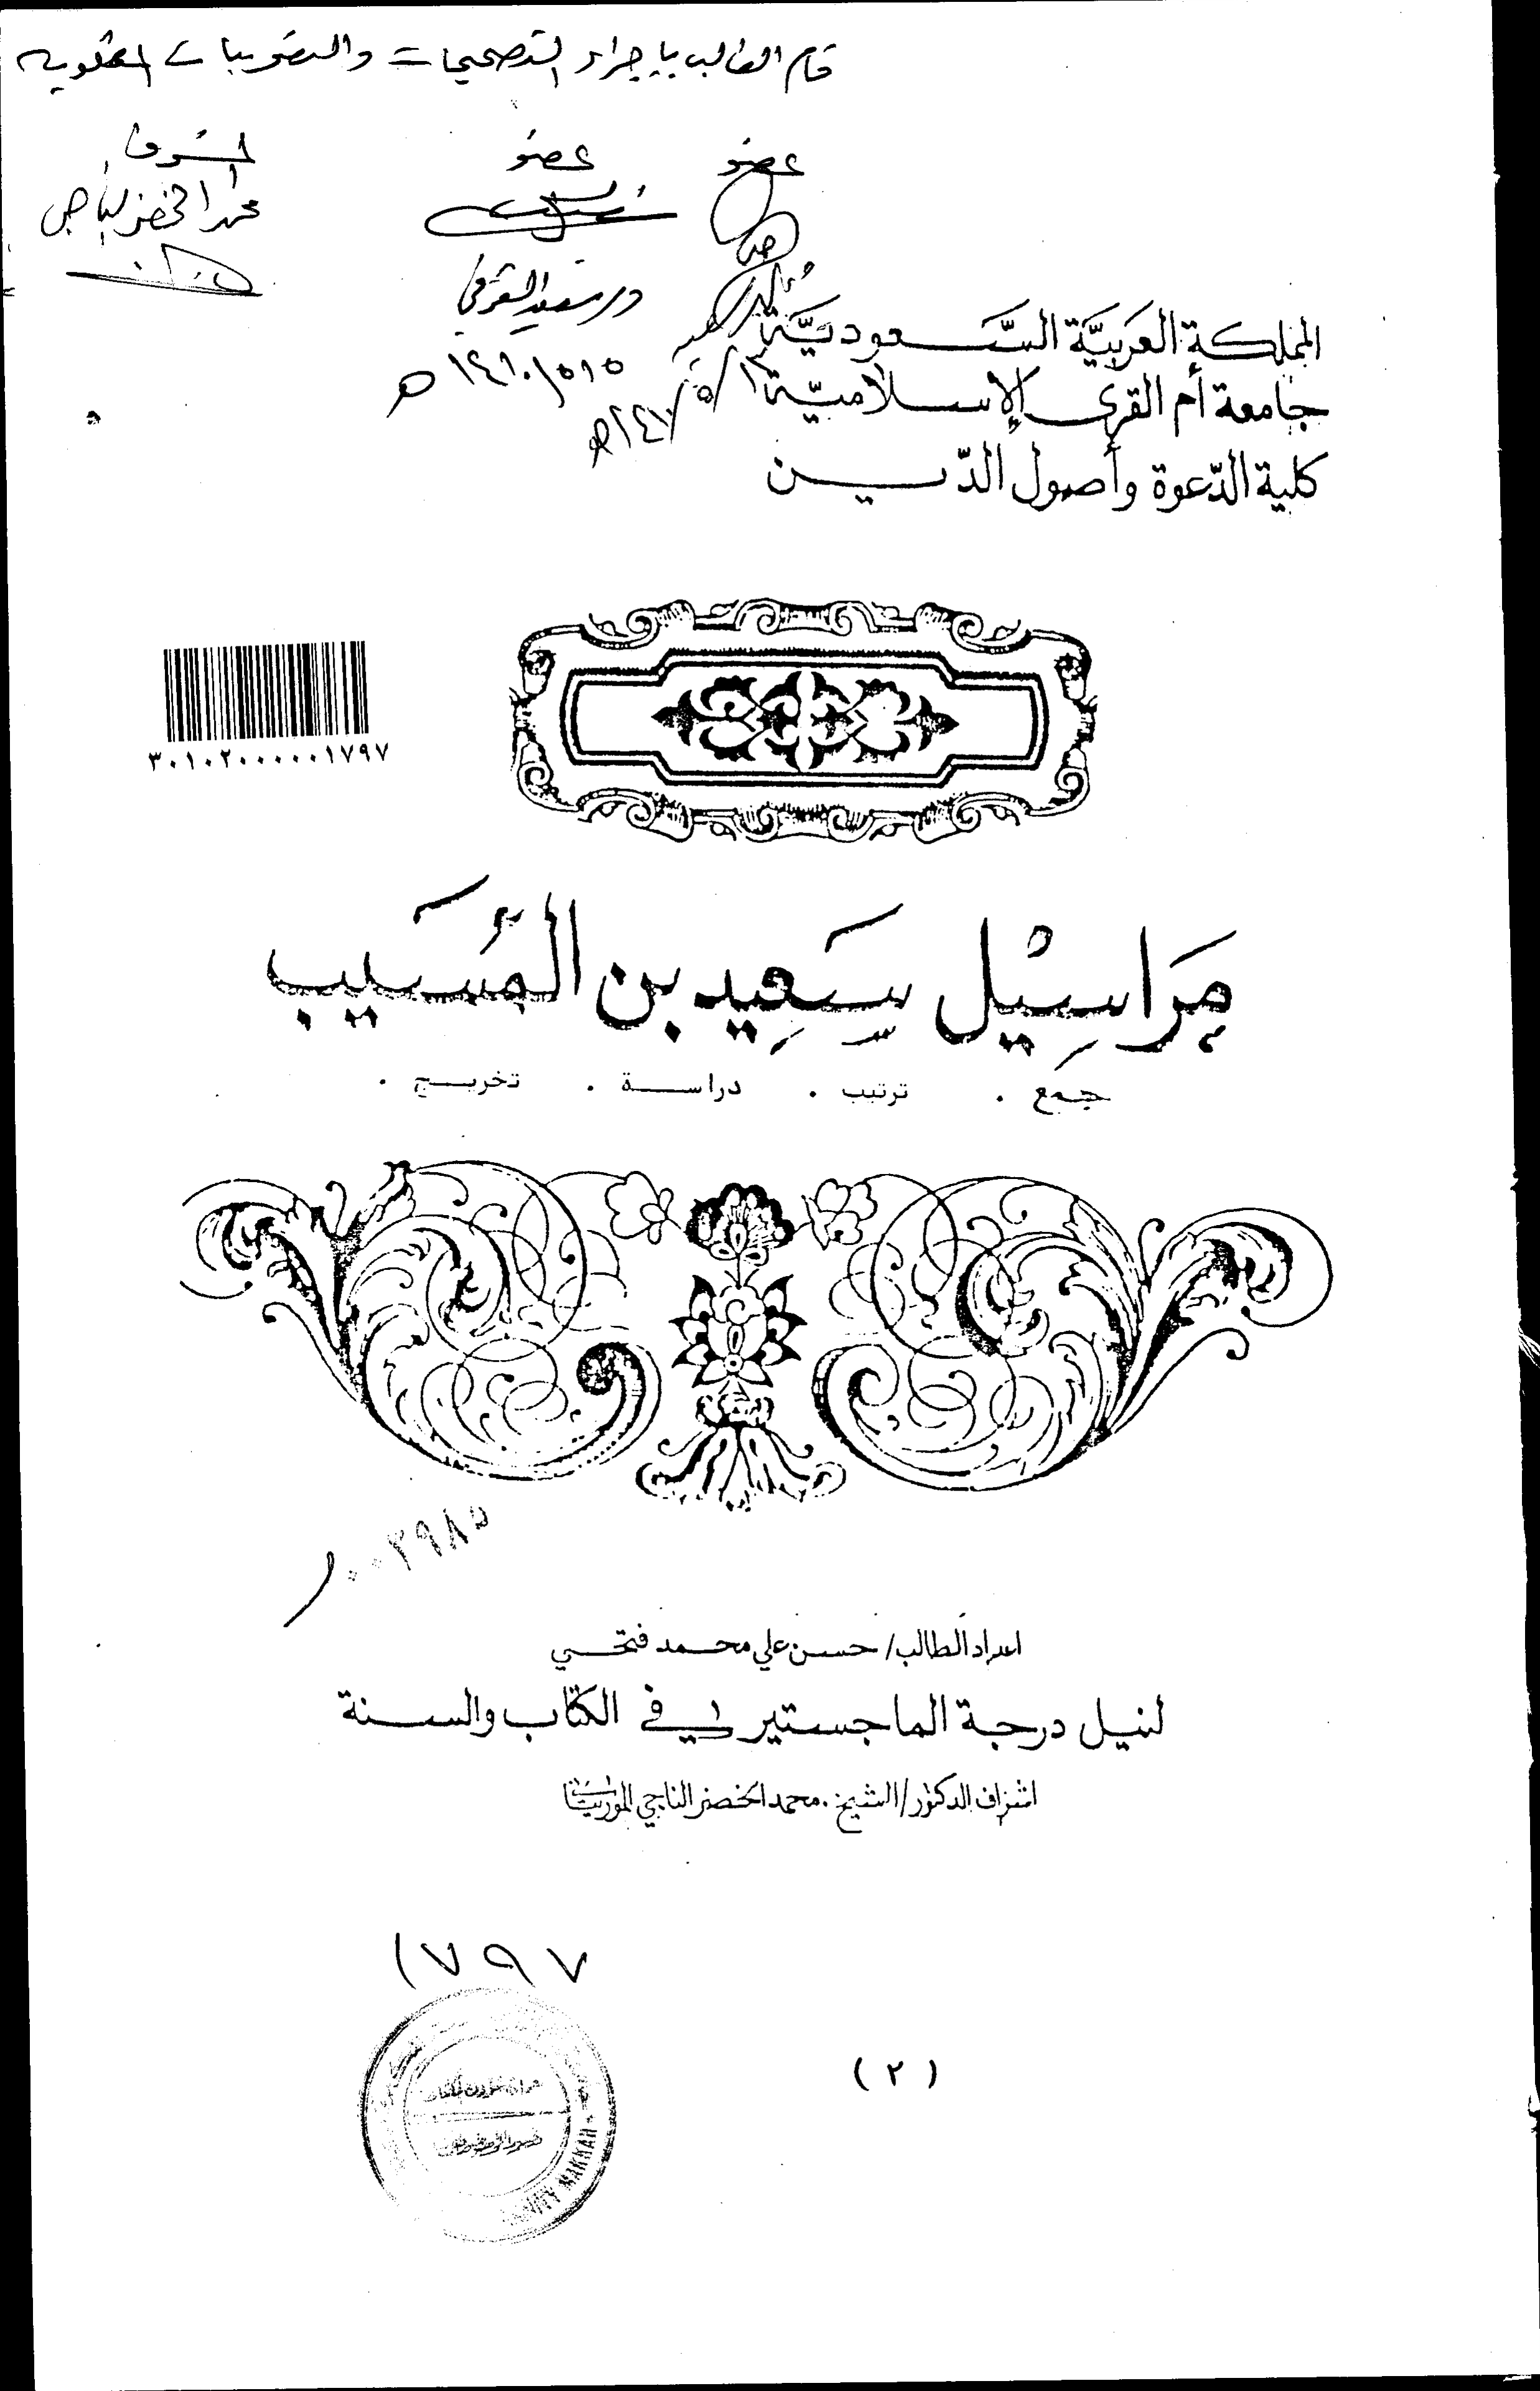 قام الطالب بإجراء التصحيحات والتصويبات المطلوبة
عضو
عضو
المشرف
محمد الخضر الناجي
د/ سعيد القزقي
١٤١٠/٥/٥ هـ
المملكة العَرَبيَّة السَّعوديَّة
جامعة أم القرى الإسلاميّة
كلية الدّعوة وأصول الدّين
٣٠١٠٢٠٠٠٠٠١٧٩٧
مَرَاسِيْل سَعِيد بن المُسَيب
جمع . ترتيب . دراسة . تخريج .
٠٠٣٩٨٥
اعداد الطالب/ حسن علي محمد فتحي
لنيل درجة الماجستير في الكتاب والسنة
اشراف الدكتور/ الشيخ . محمد الخضر الناجي الموريتاني
١٧٩٧
(٢)
MAKKAH